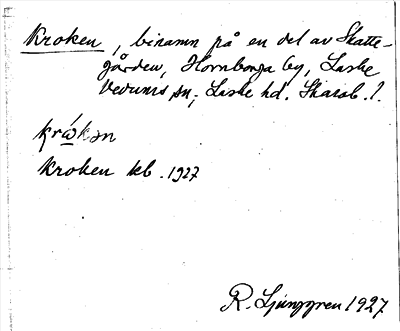 Kroken, binamn på en del av Skatte-
gården, Hornborga by, Laske
Vedums sn, Laske hd. Skarab. l.
krώkən
Kroken kb. 1927
R. Ljunggren 1927